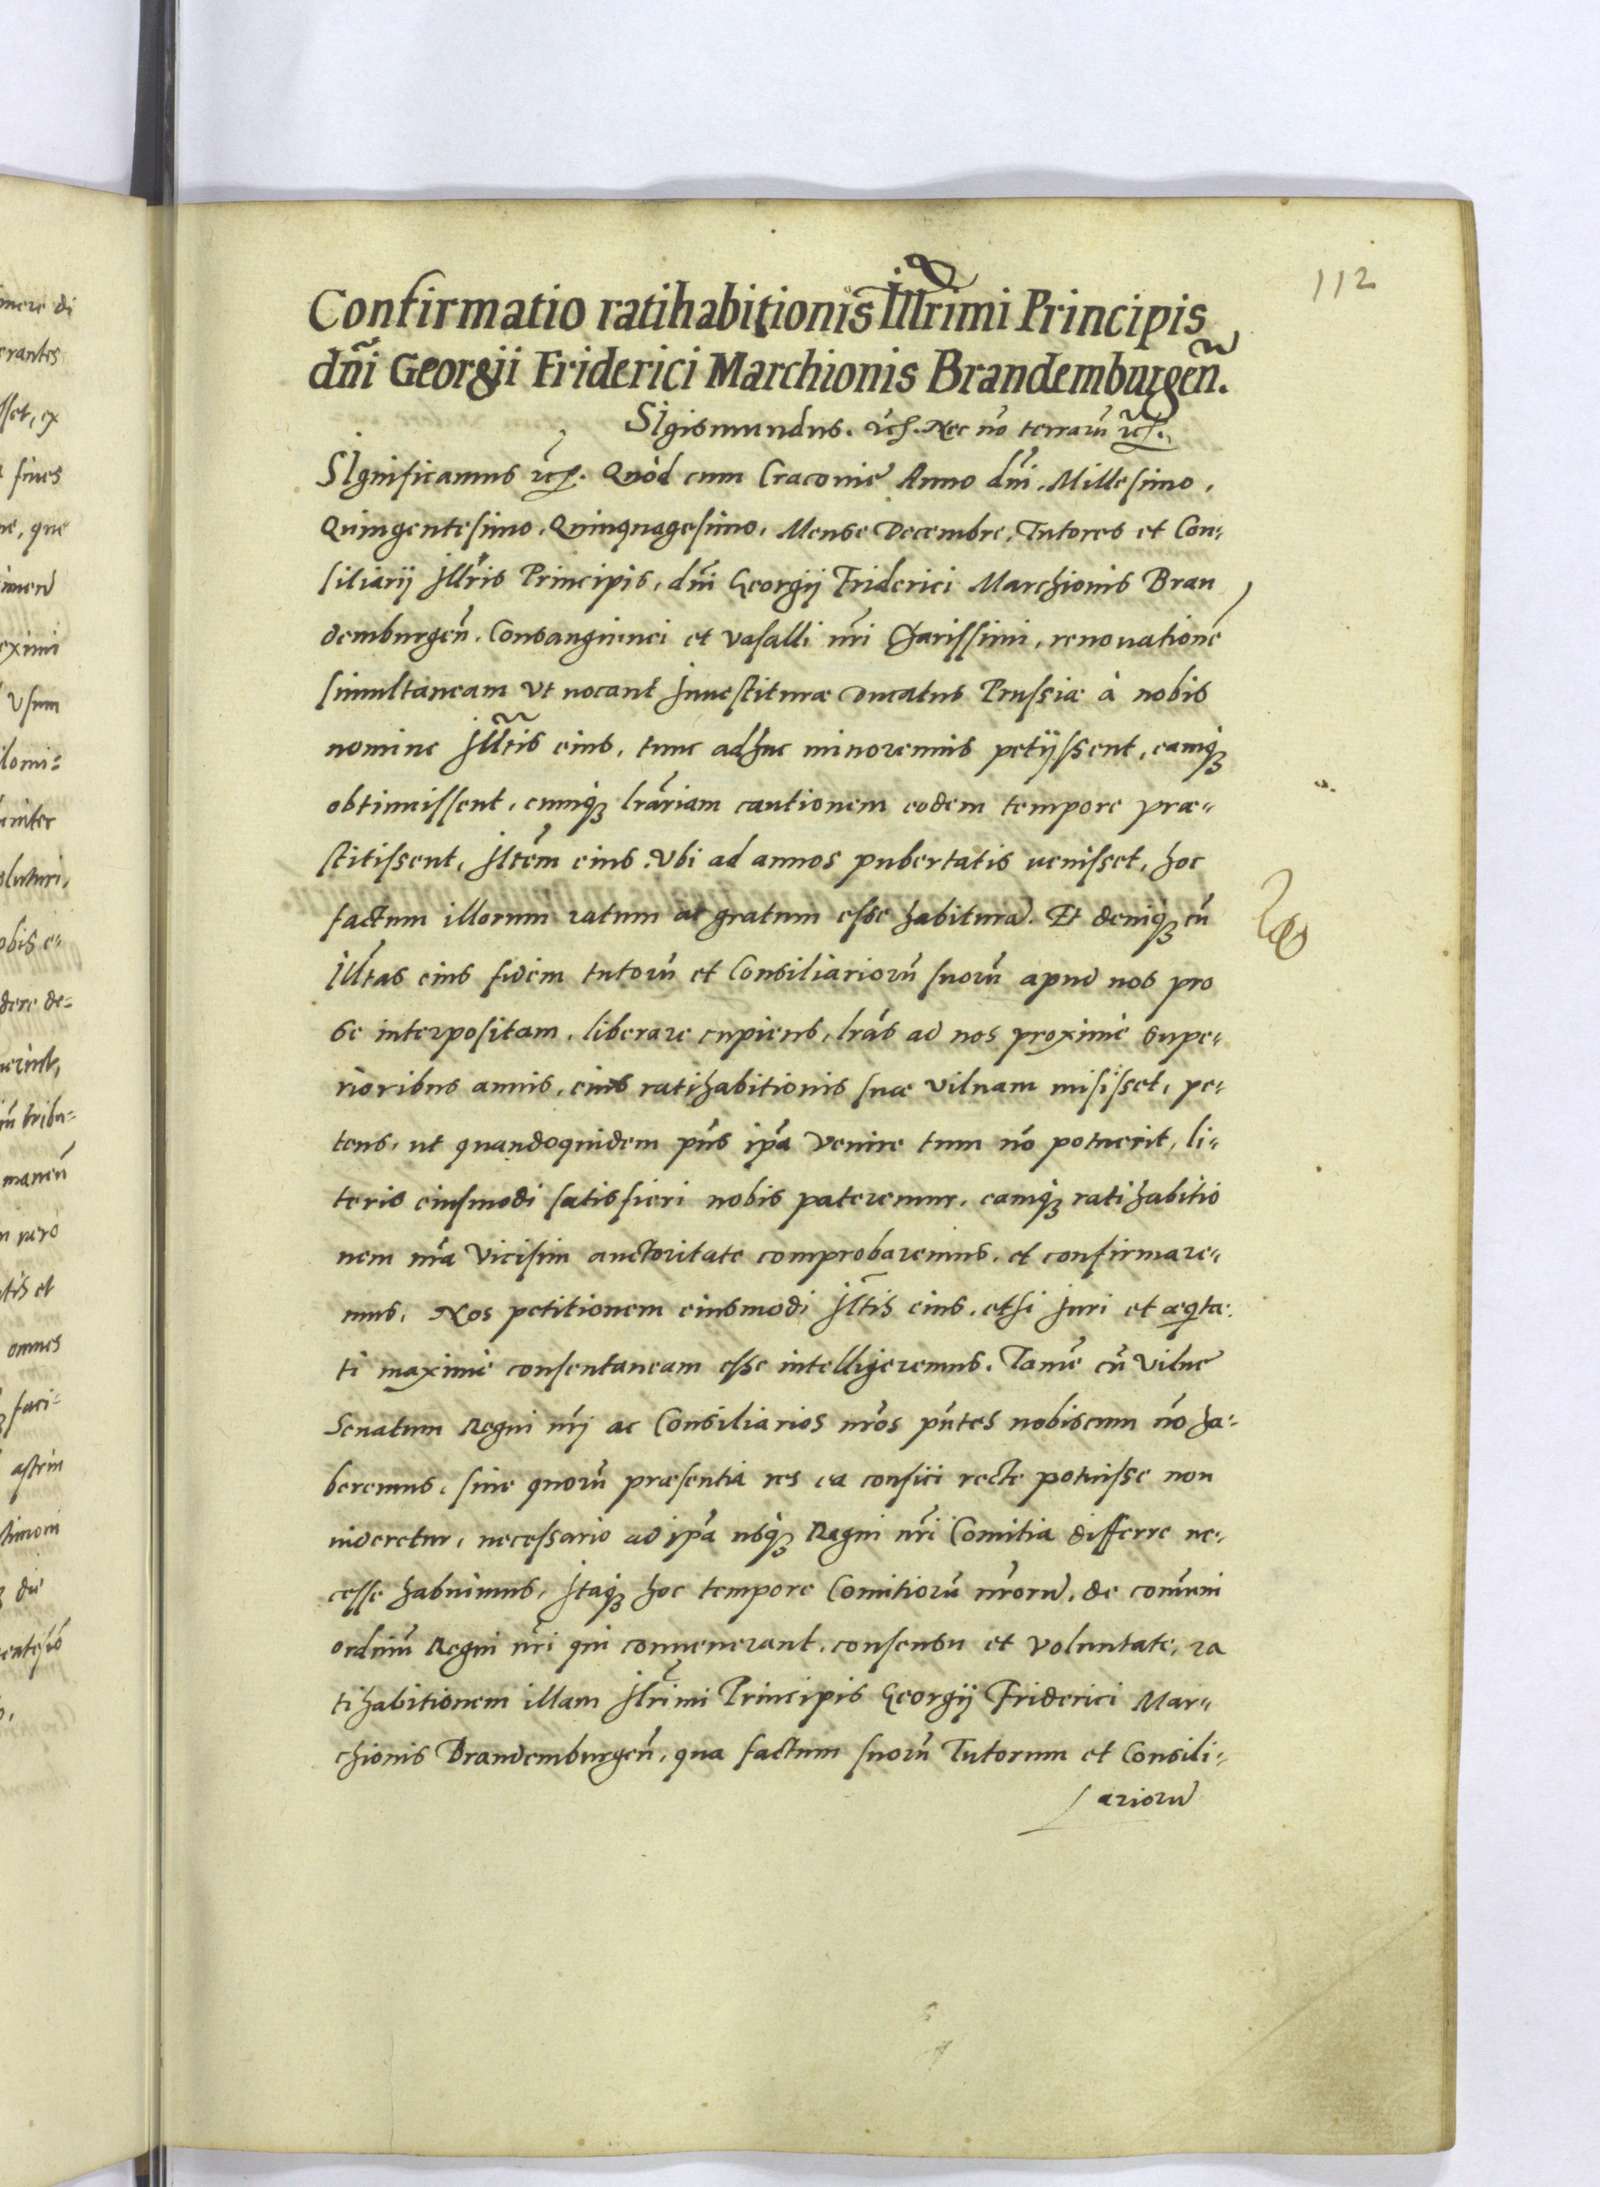 112
Confirmatio ratihabitionis Illrimi Principis
dñi Georgii Friderici Marchionis Brandemburgeñ.
SIgismundus. rc̃. Nec nõ terrarũ rc̃.
SIgnificamus rc̃. Quòd cum Cracovie Anno dñi. Millesimo,
Quingentesimo, Quinquagesimo, Mense Decembre, Tutores et Con-
siliarij Jllris Principis, dñi Georgij Friderici Marchionis Bran
demburgeñ. Consanguinei et vasalli nr̃i Charissimi, renouationẽ
simultaneam vt uocant Jnuestituræ Ducatus Prussiæ à nobis
nomine Jll̃tis eius, tunc adhuc minorennis petijssent, eamq3
obtinuissent, eumq3 lr̃ariam cautionem eodem tempore præ-
stitissent, Jltẽm eius, vbi ad annos pubertatis uenisset, hoc
factum illorum ratum ac gratum esse habituram. Et deniq3 cũ
Jll̃tas eius fidem tutorũ et Consiliariorũ suorũ apud nos pro
se interpositam, liberare cupiens, lr̃as ad nos proximè supe-
rioribus annis, eius ratihabitionis suæ Vilnam misisset, pe-
tens, ut quandoquidem pñs ip̃a venire tum nõ potuerit, li-
teris eiusmodi satisfieri nobis pateremur, eamq3 ratihabitio
nem nr̃a vicisim auctoritate comprobaremus, et confirmare-
mus. Nos petitionem eiusmodi Jll̃tis eius, etsi Juri et æqta-
ti maximè consentaneam esse intelligeremus. Tamẽ cũ Vilne
Senatum Regni nr̃j ac Consiliarios nr̃os pñtes nobiscum nõ ha-
beremus, sine quorũ præsentia res ea confici rectè potuisse non
uideretur, necessario ad ip̃a usq3 Regni nr̃i Comitia differre ne-
cesse habuimus. Jtaq3 hoc tempore Comitiorũ nr̃orum, de com̃uni
ordinũ Regni nr̃i qui conuenerant, consensu et voluntate, ra
tihabitionem illam Jllr̃imi Principis Georgij Friderici Mar-
chionis Brandemburgeñ, qua factum suorũ Tutorum et Consili-
ariorum